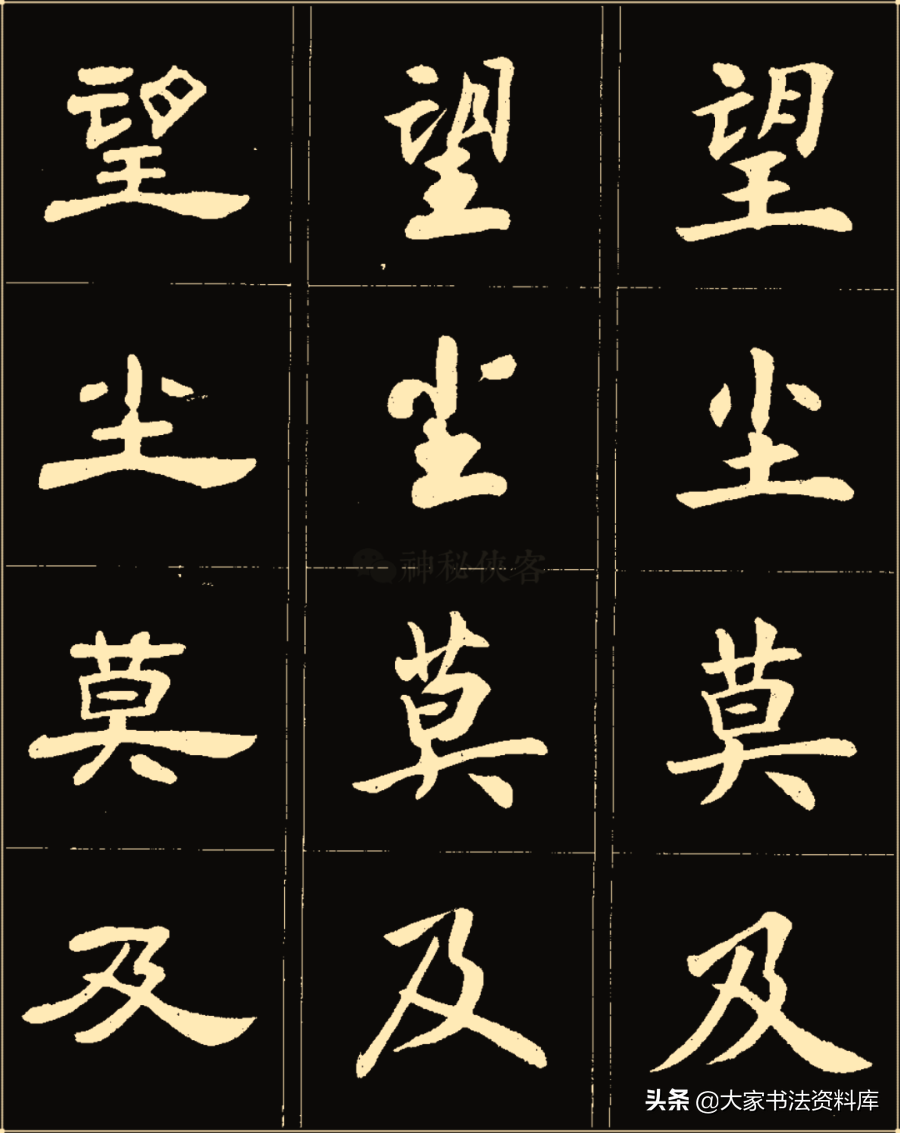 望 望 望
尘 尘 尘
神秘侠客
莫 莫 莫
及 及 及
头条 @大家书法资料库